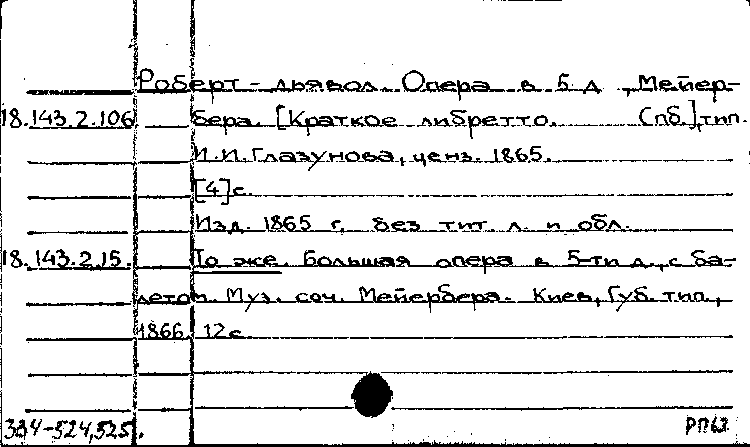 Роберт-дьявол. Опера в 5 д., Мейер-
18.143.2.106 бера. [Краткое либретто. Спб.], тип.
И.И. Глазунова, ценз. 1865.
[4] с.
Изд. 1865 г. без тит. л. и обл.
18.143.2.15. То же. Большая опера в 5-ти д., с ба-
летом. Муз. соч. Мейербера. Киев, Губ. тип.,
1866. 12 с.
334-524,525. РП62